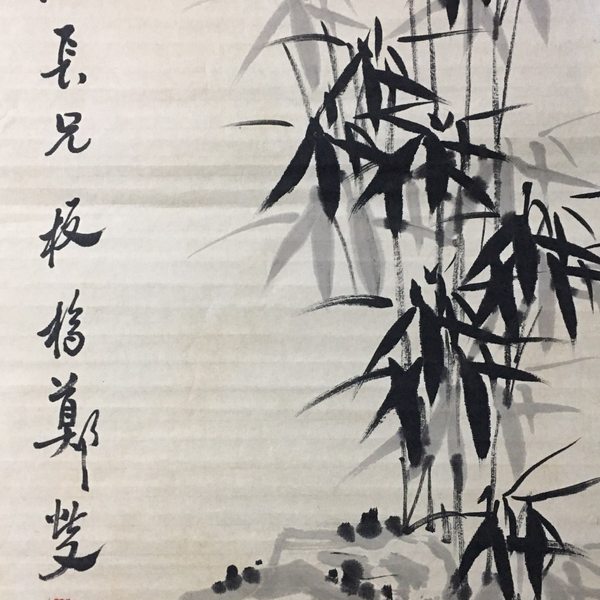 長兄板橋鄭燮